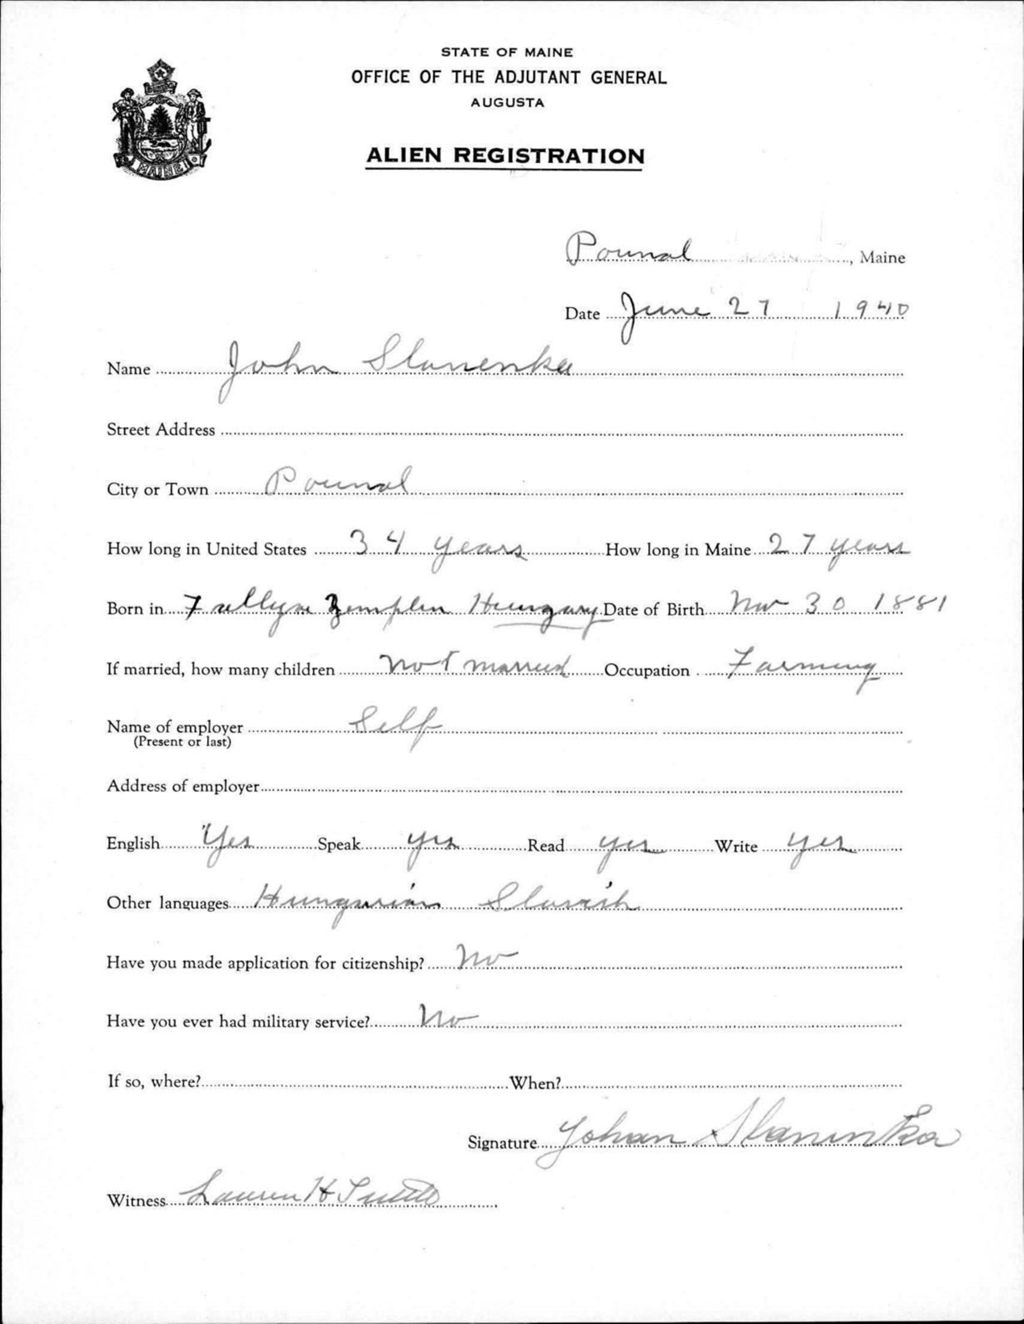 STATE OF MAINE
OFFICE OF THE ADJUTANT GENERAL
AUGUSTA
ALIEN REGISTRATION
MAINE
Pownal, Maine
Date June 27 1940
Name John Slanenka
Street Address
City or Town Pownal
How long in United States 34 years How long in Maine 27 years
Born in Zemplen Hungary Date of Birth Nov 30 1881
If married, how many children not married Occupation Farming
Name of employer Self
(Present or last)
Address of employer
English Yes Speak yes Read yes Write yes
Other languages Hungarian Slavish
Have you made application for citizenship? No
Have you ever had military service? No
If so, where? When?
Signature Johan Slaninka
Witness Lauren H